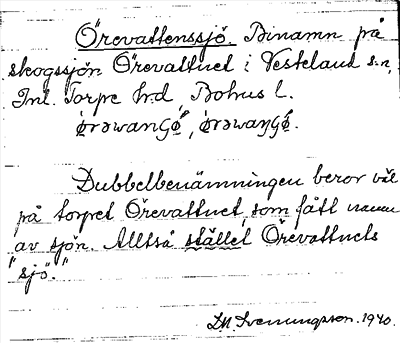 Örevattenssjö. Binamn på
skogssjön Örevattnet i Vesteland s:n,
Inl. Torpe h:d, Bohus l.
Dubbelbenämningen beror väl
på torpet Örevattnet, som fått namn
av sjön. Alltså stället Örevattnets
"sjö."
1940.